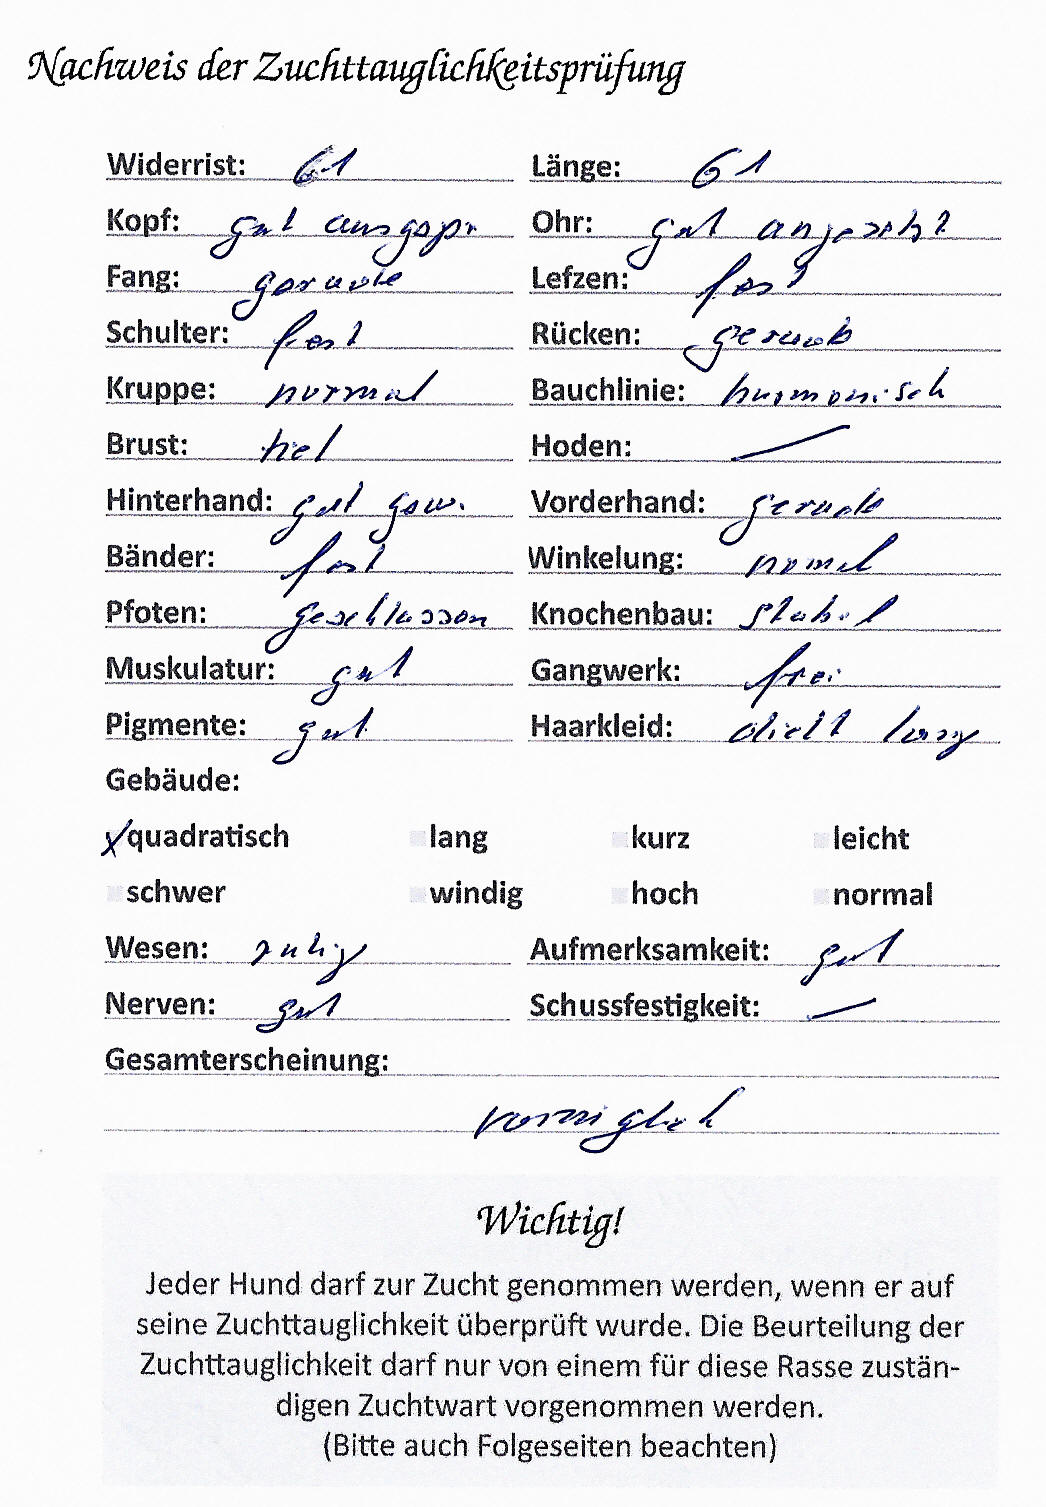 Nachweis der Zuchttauglichkeitsprüfung
Widerrist: 61 Länge: 61
Kopf: gut ausgepr Ohr: gut angesetzt
Fang: gerade Lefzen: fest
Schulter: fest Rücken: gerade
Kruppe: normal Bauchlinie: harmonisch
Brust: tief Hoden: —
Hinterhand: gut gew. Vorderhand: gerade
Bänder: fest Winkelung: normal
Pfoten: geschlossen Knochenbau: stabil
Muskulatur: gut Gangwerk: frei
Pigmente: gut Haarkleid: dicht lang
Gebäude:
X quadratisch lang kurz leicht
schwer windig hoch normal
Wesen: ruhig Aufmerksamkeit: gut
Nerven: gut Schussfestigkeit: —
Gesamterscheinung:
vorzüglich
Wichtig!
Jeder Hund darf zur Zucht genommen werden, wenn er auf
seine Zuchttauglichkeit überprüft wurde. Die Beurteilung der
Zuchttauglichkeit darf nur von einem für diese Rasse zustän-
digen Zuchtwart vorgenommen werden.
(Bitte auch Folgeseiten beachten)